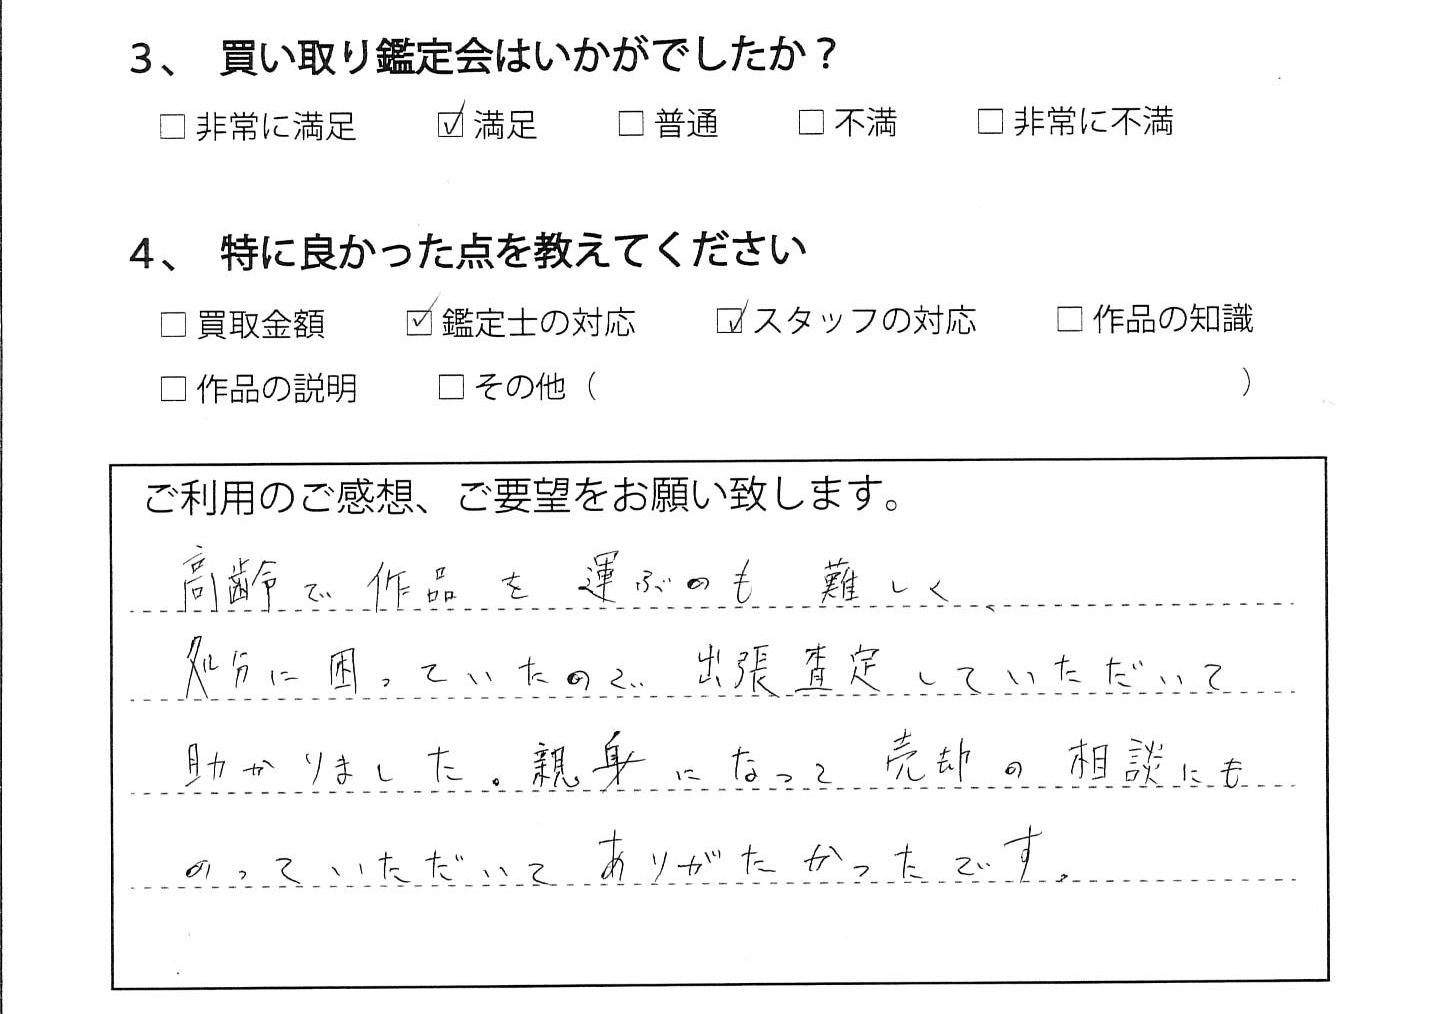 3、 買い取り鑑定会はいかがでしたか？
□ 非常に満足 ☑ 満足 □ 普通 □ 不満 □ 非常に不満
4、 特に良かった点を教えてください
□ 買取金額 ☑ 鑑定士の対応 ☑ スタッフの対応 □ 作品の知識
□ 作品の説明 □ その他（ ）
ご利用のご感想、ご要望をお願い致します。
高齢で作品を運ぶのも難しく、
処分に困っていたので出張査定していただいて
助かりました。親身になって売却の相談にも
のっていただいてありがたかったです。